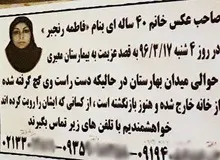 صاحب عکس خانم ۴۰ ساله ای بنام «فاطمه رنجبر»
در روز ۴ شنبه ۹۶/۳/۱۷ به قصد عزیمت به بیمارستان معیری
حوالی میدان بهارستان در حالیکه دست راست وی گچ گرفته شده
از خانه خارج شده و هنوز بازنگشته است، از کسانی که ایشان را رویت کرده اند
خواهشمندیم با تلفن های زیر تماس بگیرند
۰۹۱۹۴ ۰۹۳۵ ۰۲۱۳۳